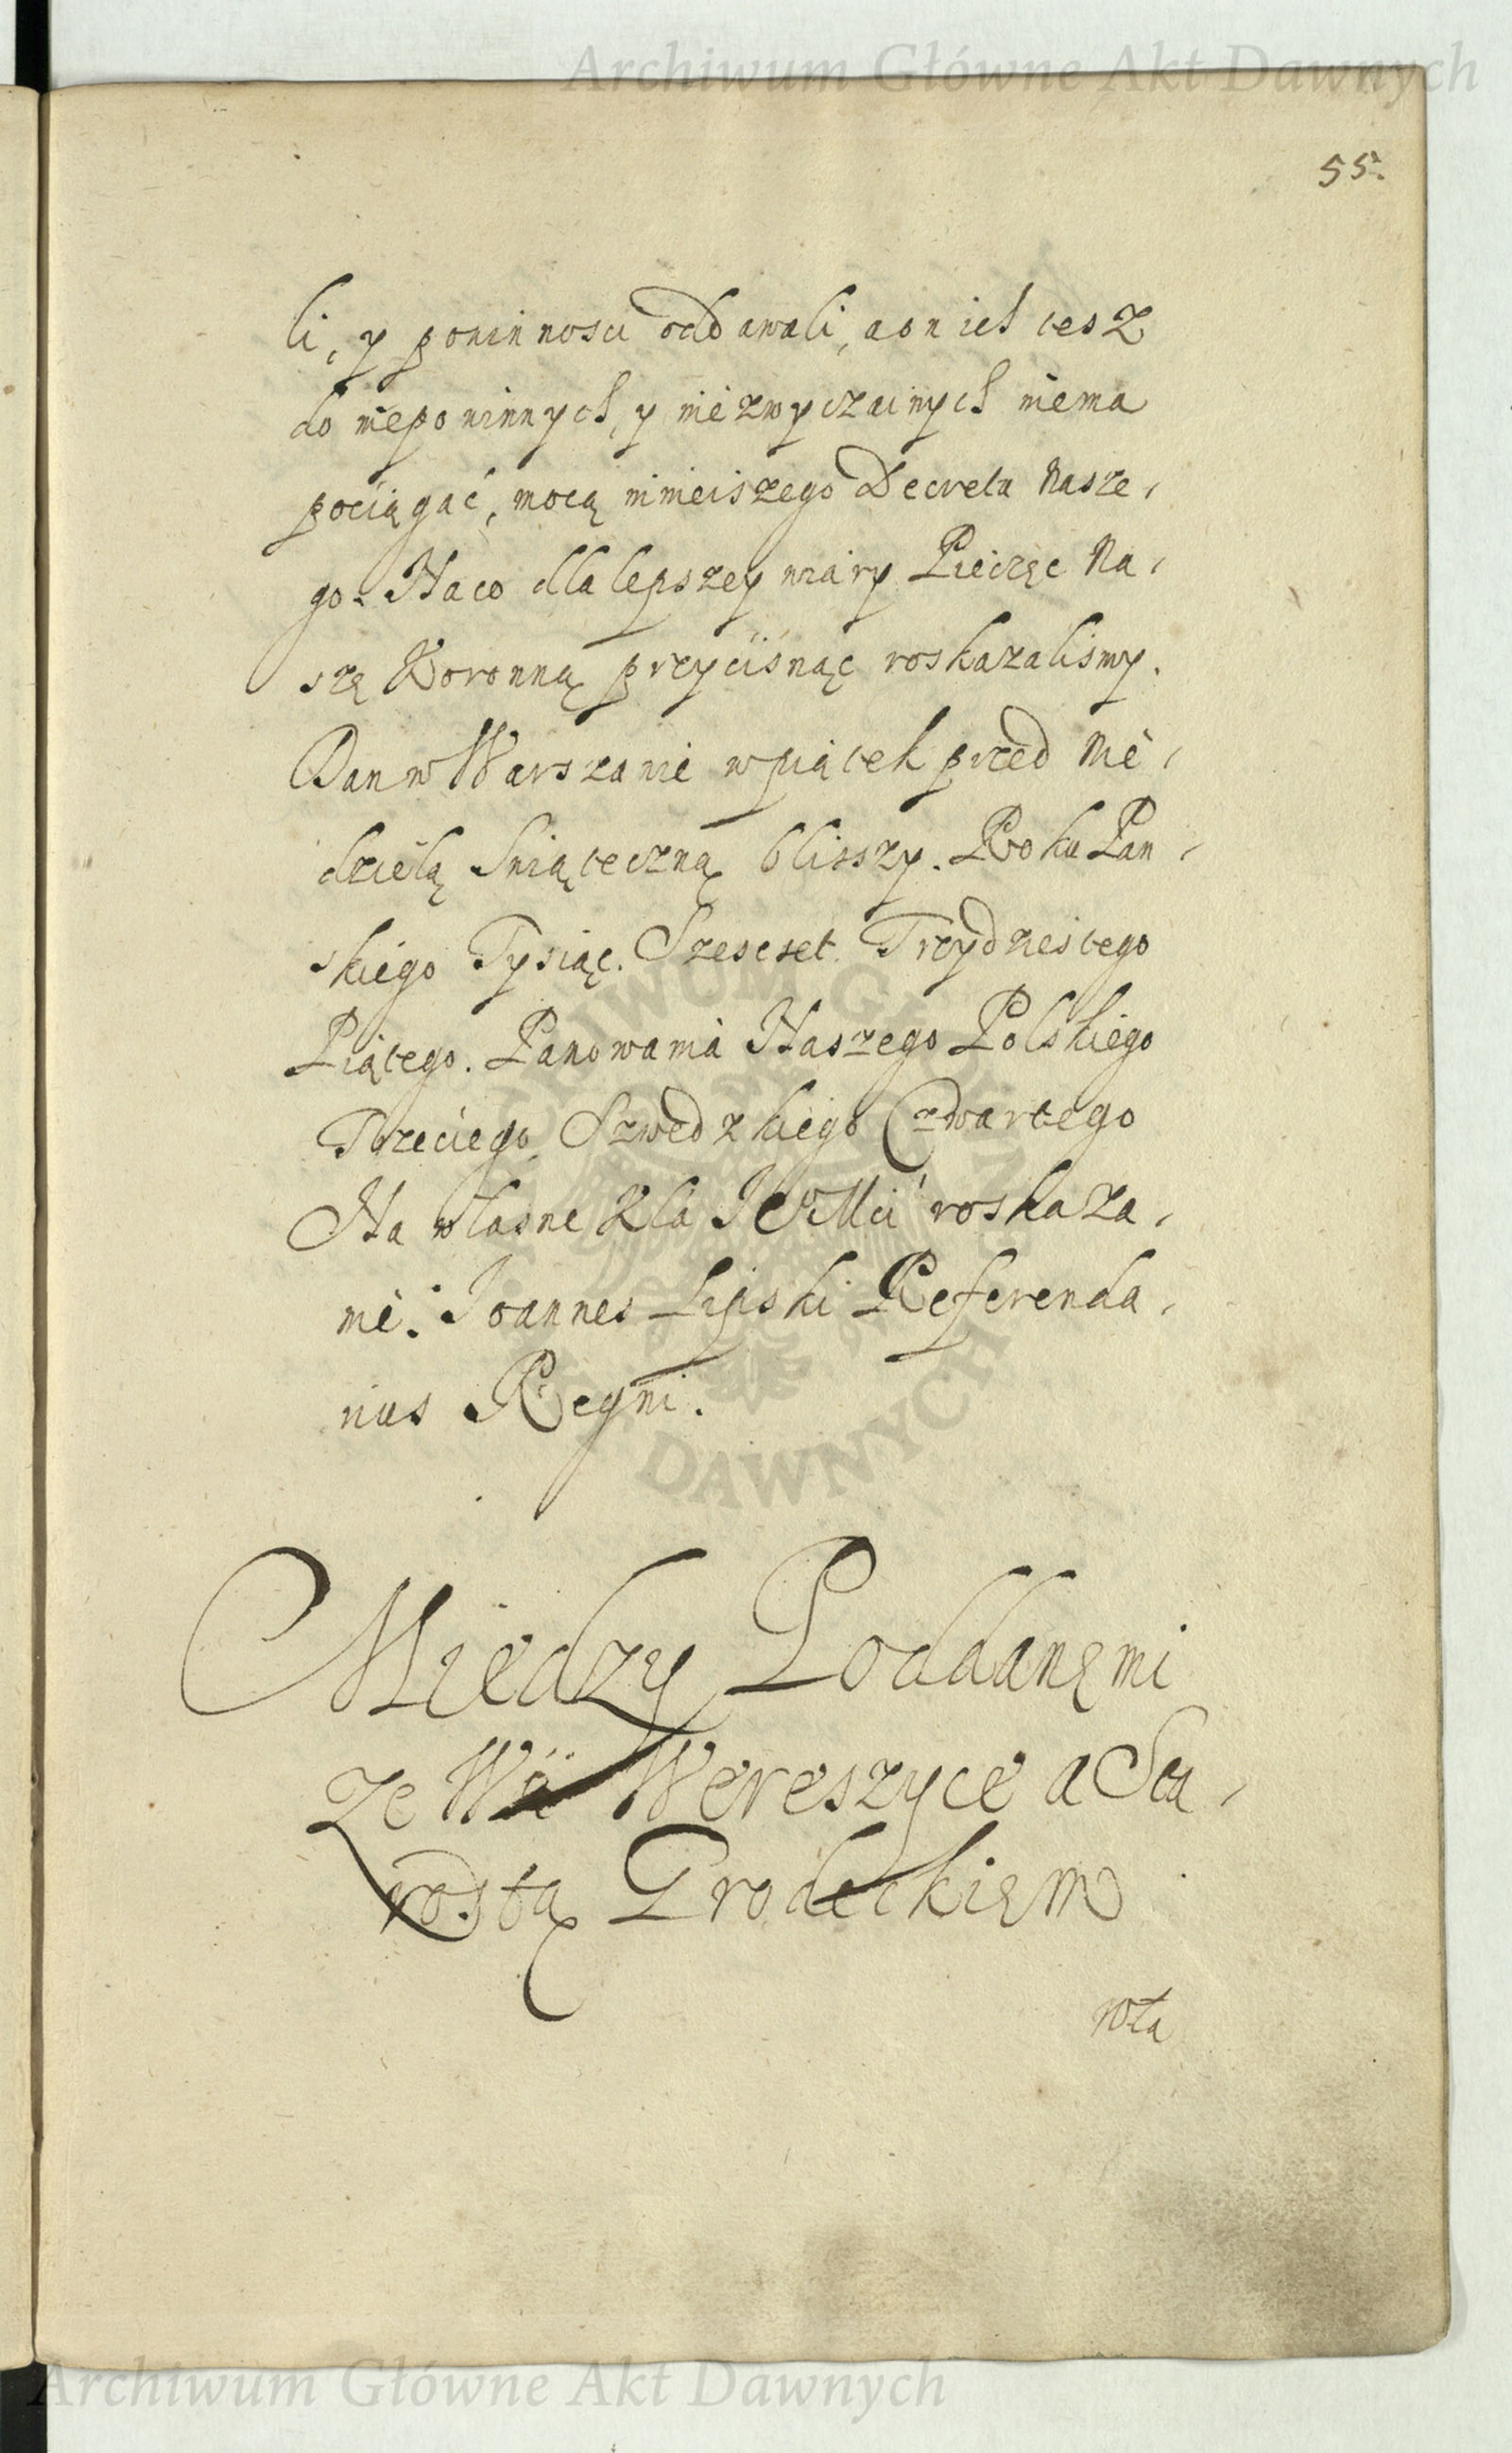 Archiwum Główne Akt Dawnych
55.
li, y powinnosci oddawali, a on ich tesz
do niepowinnych, y niezwyczainych niema
pociągać, mocą ninieiszego Decretu Nasze,
go. Na co dla lepszey wiary Pieczęc Na,
szą Koronną przycisnąc roskazalismy.
Dan w Warszawie w piątek przed Nie,
dzielą Swiąteczną blisszy. Roku Pan,
skiego Tysiąc. Szescset. Trzydziestego
Piątego. Panowania Naszego Polskiego
Trzeciego Szwedzkiego Czwartego
Na własne Kla JeoMci roskaza,
nie. Joannes Lipski Referenda,
rius Regni.
Miedzy Poddanęmi
ze Wsi Wereszyce a Sta,
rostą Grodeckięm
wta
ARCHIWUM GŁÓWNE AKT DAWNYCH
Archiwum Główne Akt Dawnych